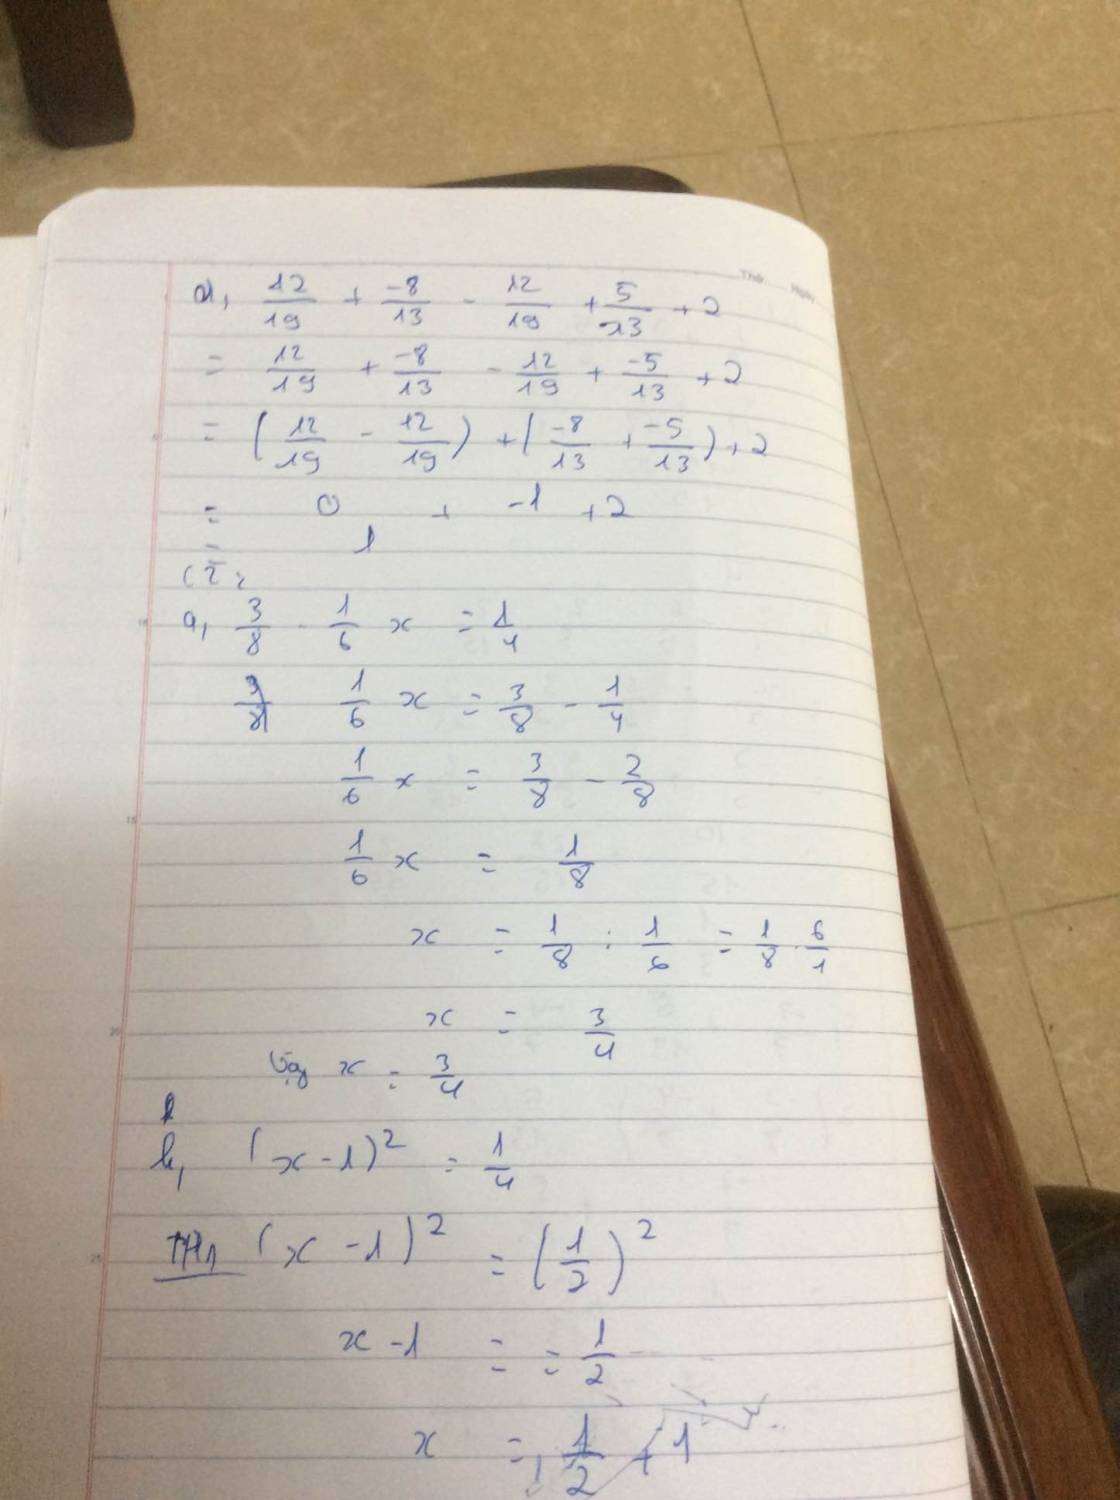 Thứ Ngày
a, 12/19 + -8/13 - 12/19 + 5/-13 + 2
= 12/19 + -8/13 - 12/19 + -5/13 + 2
= (12/19 - 12/19) + (-8/13 + -5/13) + 2
= 0 + -1 + 2
= 1
a, 3/8 - 1/6 x = 1/4
1/6 x = 3/8 - 1/4
1/6 x = 3/8 - 2/8
1/6 x = 1/8
x = 1/8 : 1/6 = 1/8 . 6/1
x = 3/4
Vậy x = 3/4
b, (x - 1)² = 1/4
TH1 (x - 1)² = (1/2)²
x - 1 = = 1/2
x = 1/2 + 1